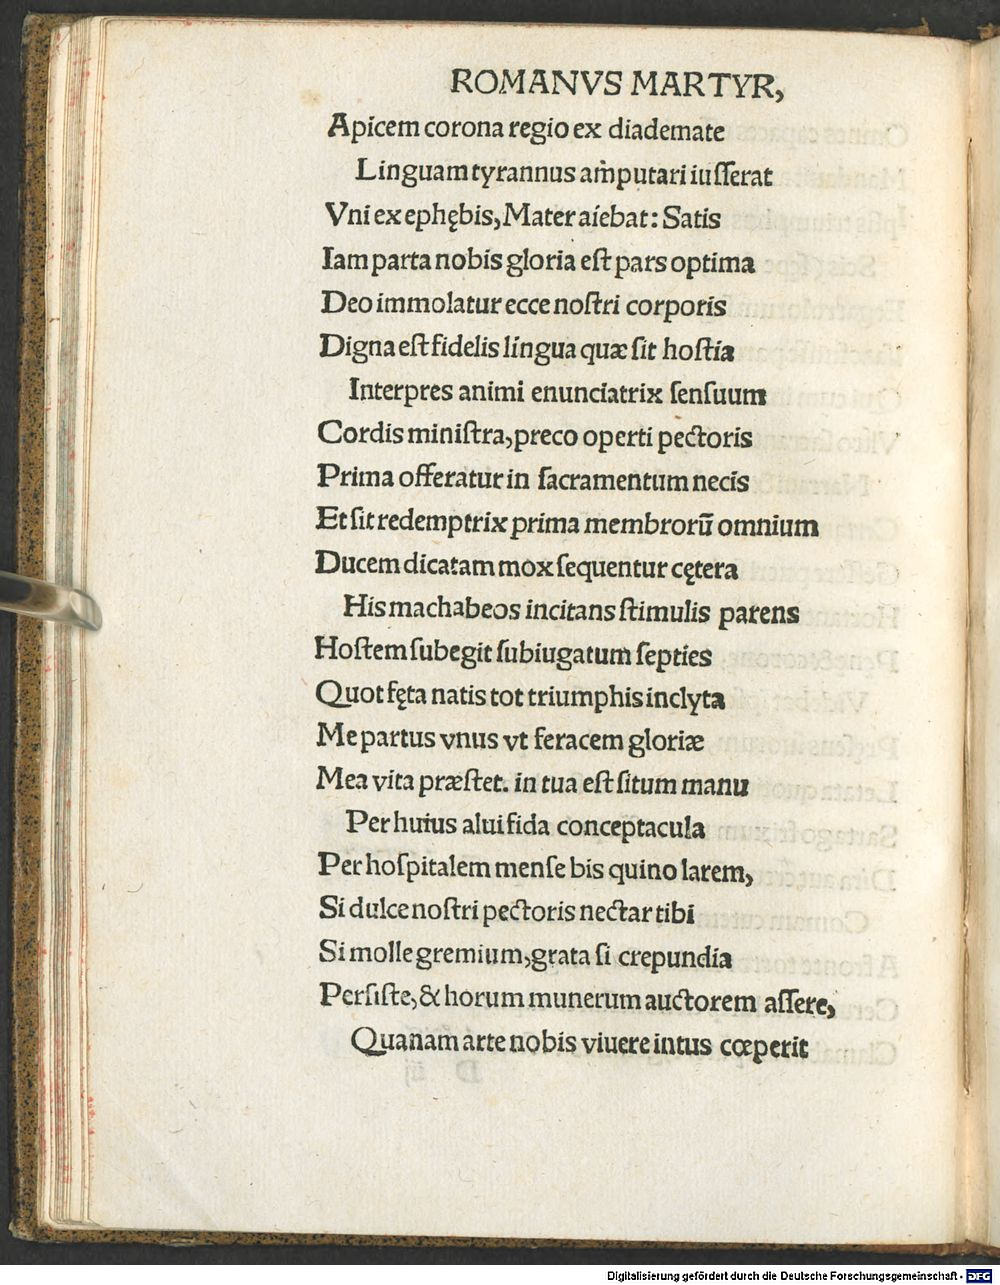 ROMANVS MARTYR,
Apicem corona regio ex diademate
Linguam tyrannus amputari iuſſerat
Vni ex ephębis, Mater aiebat: Satis
Iam parta nobis gloria eſt pars optima
Deo immolatur ecce noſtri corporis
Digna eſt fidelis lingua quæ ſit hoſtia
Interpres animi enunciatrix ſenſuum
Cordis miniſtra, preco operti pectoris
Prima offeratur in ſacramentum necis
Et ſit redemptrix prima membrorū omnium
Ducem dicatam mox ſequentur cętera
His machabeos incitans ſtimulis parens
Hoſtem ſubegit ſubiugatum ſepties
Quot fęta natis tot triumphis inclyta
Me partus vnus vt feracem gloriæ
Mea vita præſtet. in tua eſt ſitum manu
Per huius alui fida conceptacula
Per hoſpitalem menſe bis quino larem,
Si dulce noſtri pectoris nectar tibi
Si molle gremium, grata ſi crepundia
Perſiſte, & horum munerum auctorem aſſere,
Quanam arte nobis viuere intus cœperit
Digitalisierung gefördert durch die Deutsche Forschungsgemeinschaft - DFG